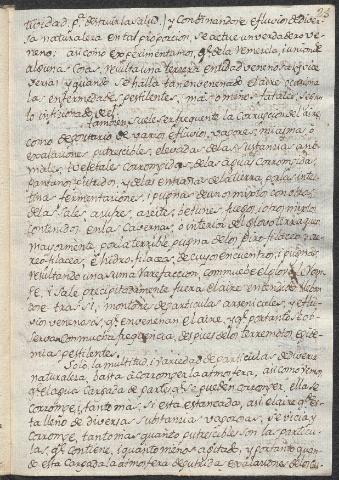 23
tivo dad. pa. destruir la salud.) y Combinandose efluvios de diver
sa naturaleza en tal proporcion, se active un verdadero ve
neno: asi como experimentamos, qe. de la
algunas cosas, resulta una tercera entidad venenosa
y quando se halla tan envenenado el aire, ocasiona
las enfermedades pestilentes, mas o menos fatales, segun
lo inficionado de el.
Tambien suele ser frequente la Corrupcion del aire
como depositario de varios efluvios, vapores, miasmas, o
exalaciones putrescibles, elevadas de las substancias ani
males, i vejetales Corrompidas, de las aguas Corrompidas,
pantanos, y de las entrañas de la tierra, por las intes
tinas fermentaciones, i pugnas de unos mixtos con otros
de las sales, azufres, aceites, betunes, fuegos, i otros mixtos
contenidos en las Cavernas, o interior del globo terraqueo
mayormente por la terrible pugna de los
de cuyo encuentro, i pugnas,
resultando una suma rarefaccion, commueve el globo,
pe, i sale precipitadamente fuera el aire encerrado, llevan
dose tras si, montones de particulas arsenicales, y eflu
vios venenosos, qe. envenenan el aire, y qe. por tanto se ob
serva con mucha frequencia, despues de los terremotos, epide
mias pestilentes.
Solo la multitud, i variedad de particulas de diversa
naturaleza, basta a Corromper la atmosfera, asi como vemos
qe. el agua Cargada de partes, qe. se pueden Corromper, ella se
Corrompe, i tanto mas, si esta estancada, asi el aire qe. es
ta lleno de diversas substancias vaporosas, se vicia, y
Corrompe, tanto mas quanto putrescibles son las particu
las, qe. contiene, i quanto menos agitado, y por tanto quan
do esta Cargada la atmosfera de putridas exalaciones de los Cu